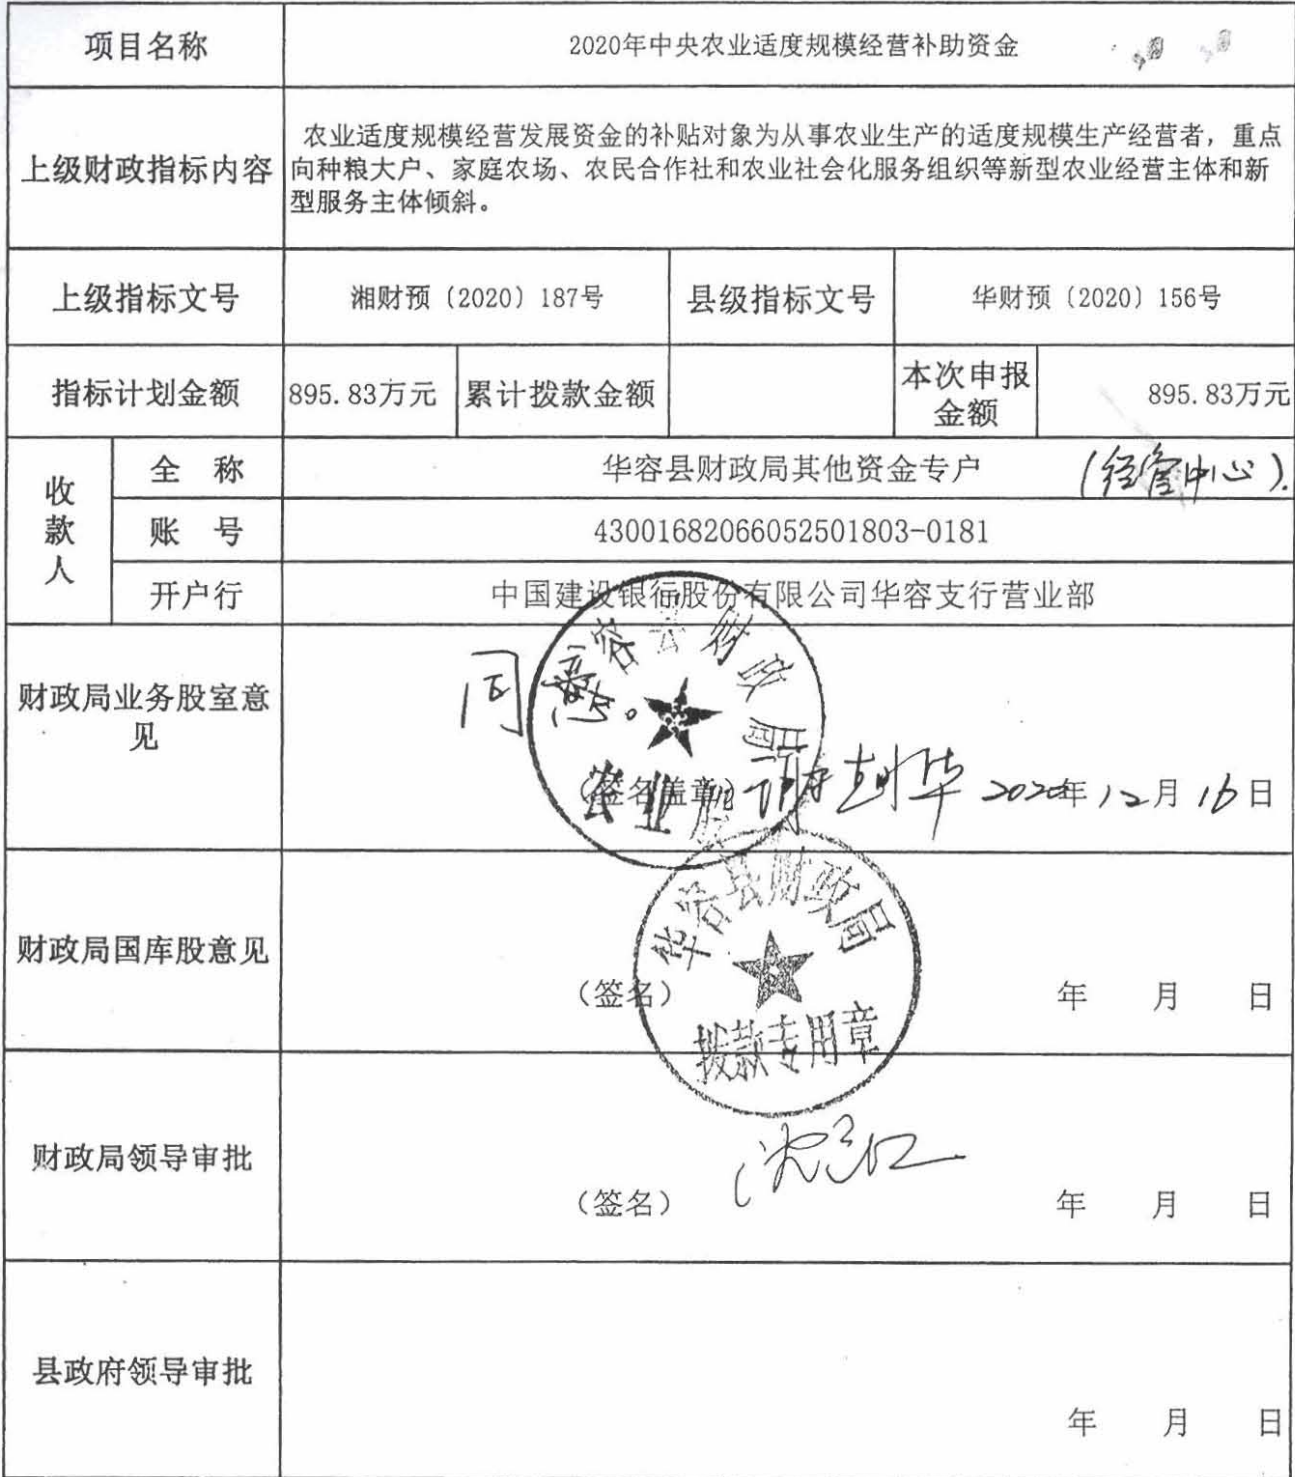 项目名称
2020年中央农业适度规模经营补助资金
上级财政指标内容
农业适度规模经营发展资金的补贴对象为从事农业生产的适度规模生产经营者，重点
向种粮大户、家庭农场、农民合作社和农业社会化服务组织等新型农业经营主体和新
型服务主体倾斜。
上级指标文号
湘财预〔2020〕187号
县级指标文号
华财预〔2020〕156号
指标计划金额
895.83万元
累计拨款金额
本次申报
金额
895.83万元
收款人
全 称
华容县财政局其他资金专户
(经管中心).
账 号
43001682066052501803-0181
开户行
中国建设银行股份有限公司华容支行营业部
财政局业务股室意
见
同意。
容县财政局
农业股
（签名盖章）
2020年12月16日
财政局国库股意见
华容县财政局
拨款专用章
（签名）
年 月 日
财政局领导审批
（签名）
年 月 日
县政府领导审批
年 月 日